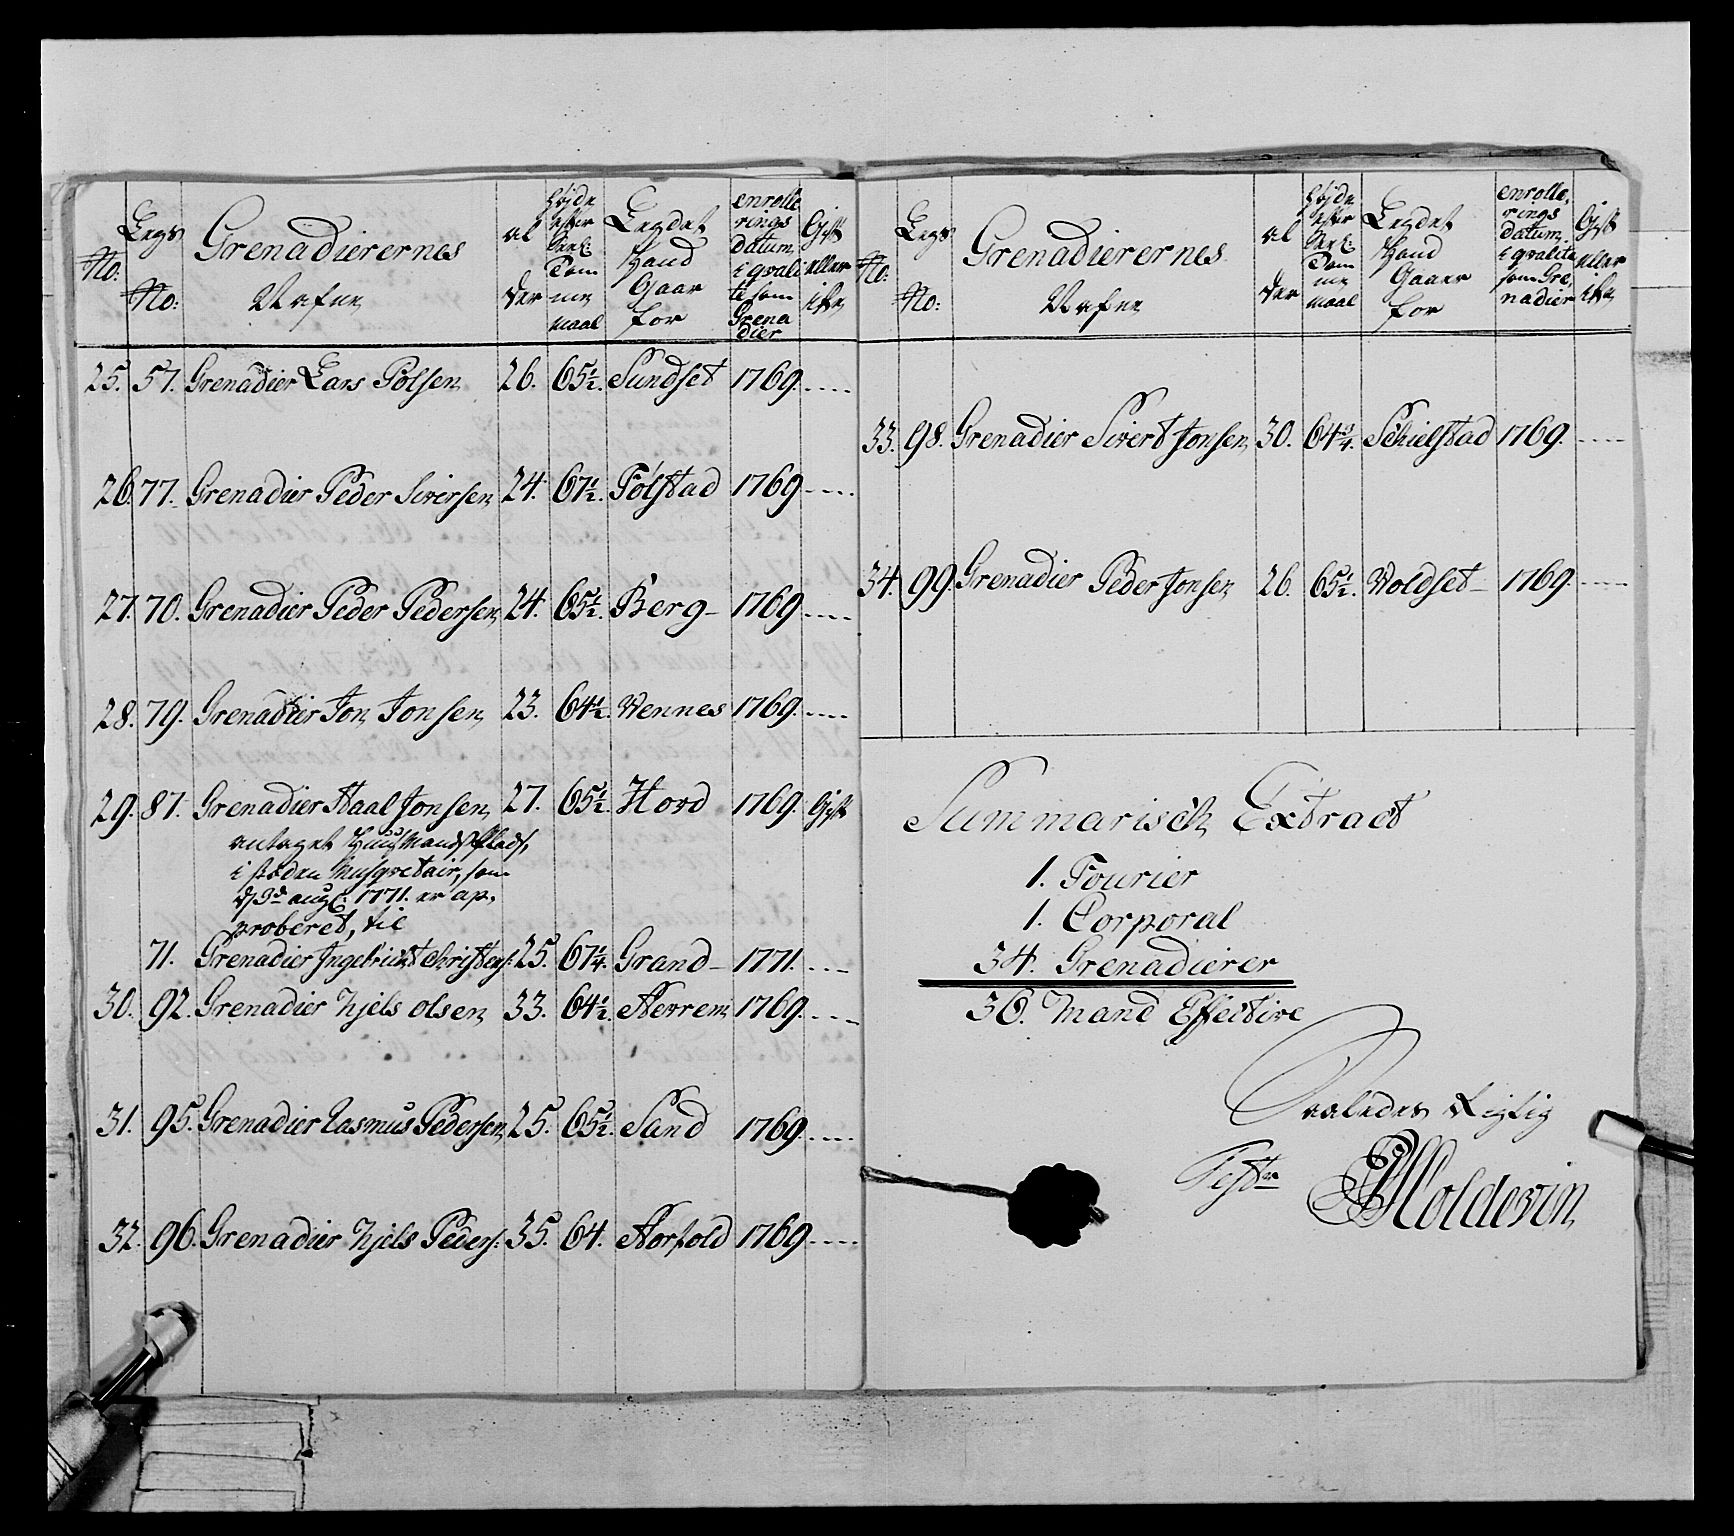 No: Legs No: Grenadierernes Nafne al der Høyde efter Tom me maal Legdet Hand Gaar for enrolle rings datum i qvali te som Grena dier Gift eller ike
25. 57. Grenadier Lars Polsen 26. 65½. Sundset 1769. ....
26. 77. Grenadier Peder Siversen 24. 67½. Folstad 1769 ....
27. 70. Grenadier Peder Pedersen 24. 65½. Berg 1769 ....
28. 79. Grenadier Jon Jonsen 23. 64½. Vennes 1769. ....
29. 87. Grenadier Staal Jonsen 27. 65½. Hovd 1769. Gift
antaget Huusmands Plads,
i steden Musqvetair, som
d 3d aug. 1771. er ap,
proberet, til
71. Grenadier Ingebrict Christens: 25. 67¼. Grand 1771. ...
30. 92. Grenadier Njels Olsen 33. 64½. Nerrem 1769. ....
31. 95. Grenadier Rasmus Pedersen 25. 65½. Sand 1769. ....
32. 96. Grenadier Njels Peders: 35. 64. Norfold 1769. ....
No: Legs No: Grenadierernes Nafne al der Høyde efter Tom me maal Legdet Hand Gaaer for enrolle, rings datum i qvalite som Gre, nadier Gift eller ike
33. 98. Grenadier Sivert Jonsen 30. 64¾. Schielstad 1769. ....
34. 99. Grenadier Peder Jonsen 26. 65½. Voldset 1769. ....
Summarisch Extract
1. Fourier
1. Corporal
34. Grenadierer
36. Mand Effective
Saaledes Rigtig
Test
Holdevin